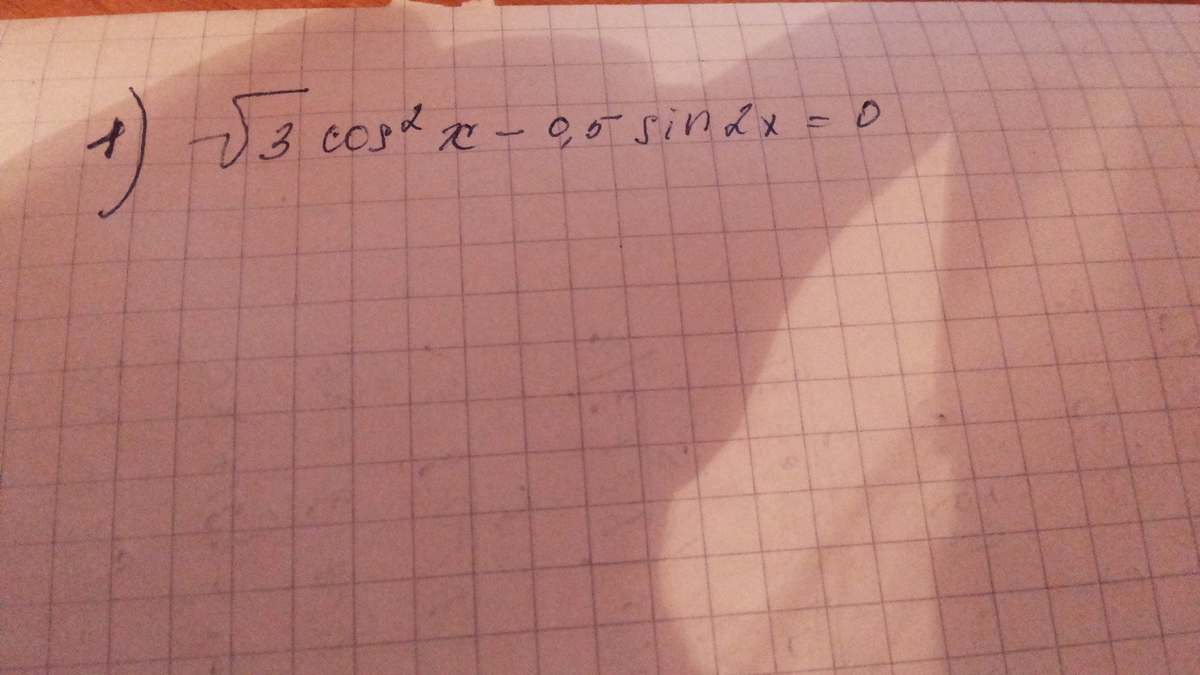 1) √3 cos² x - 0,5 sin 2x = 0